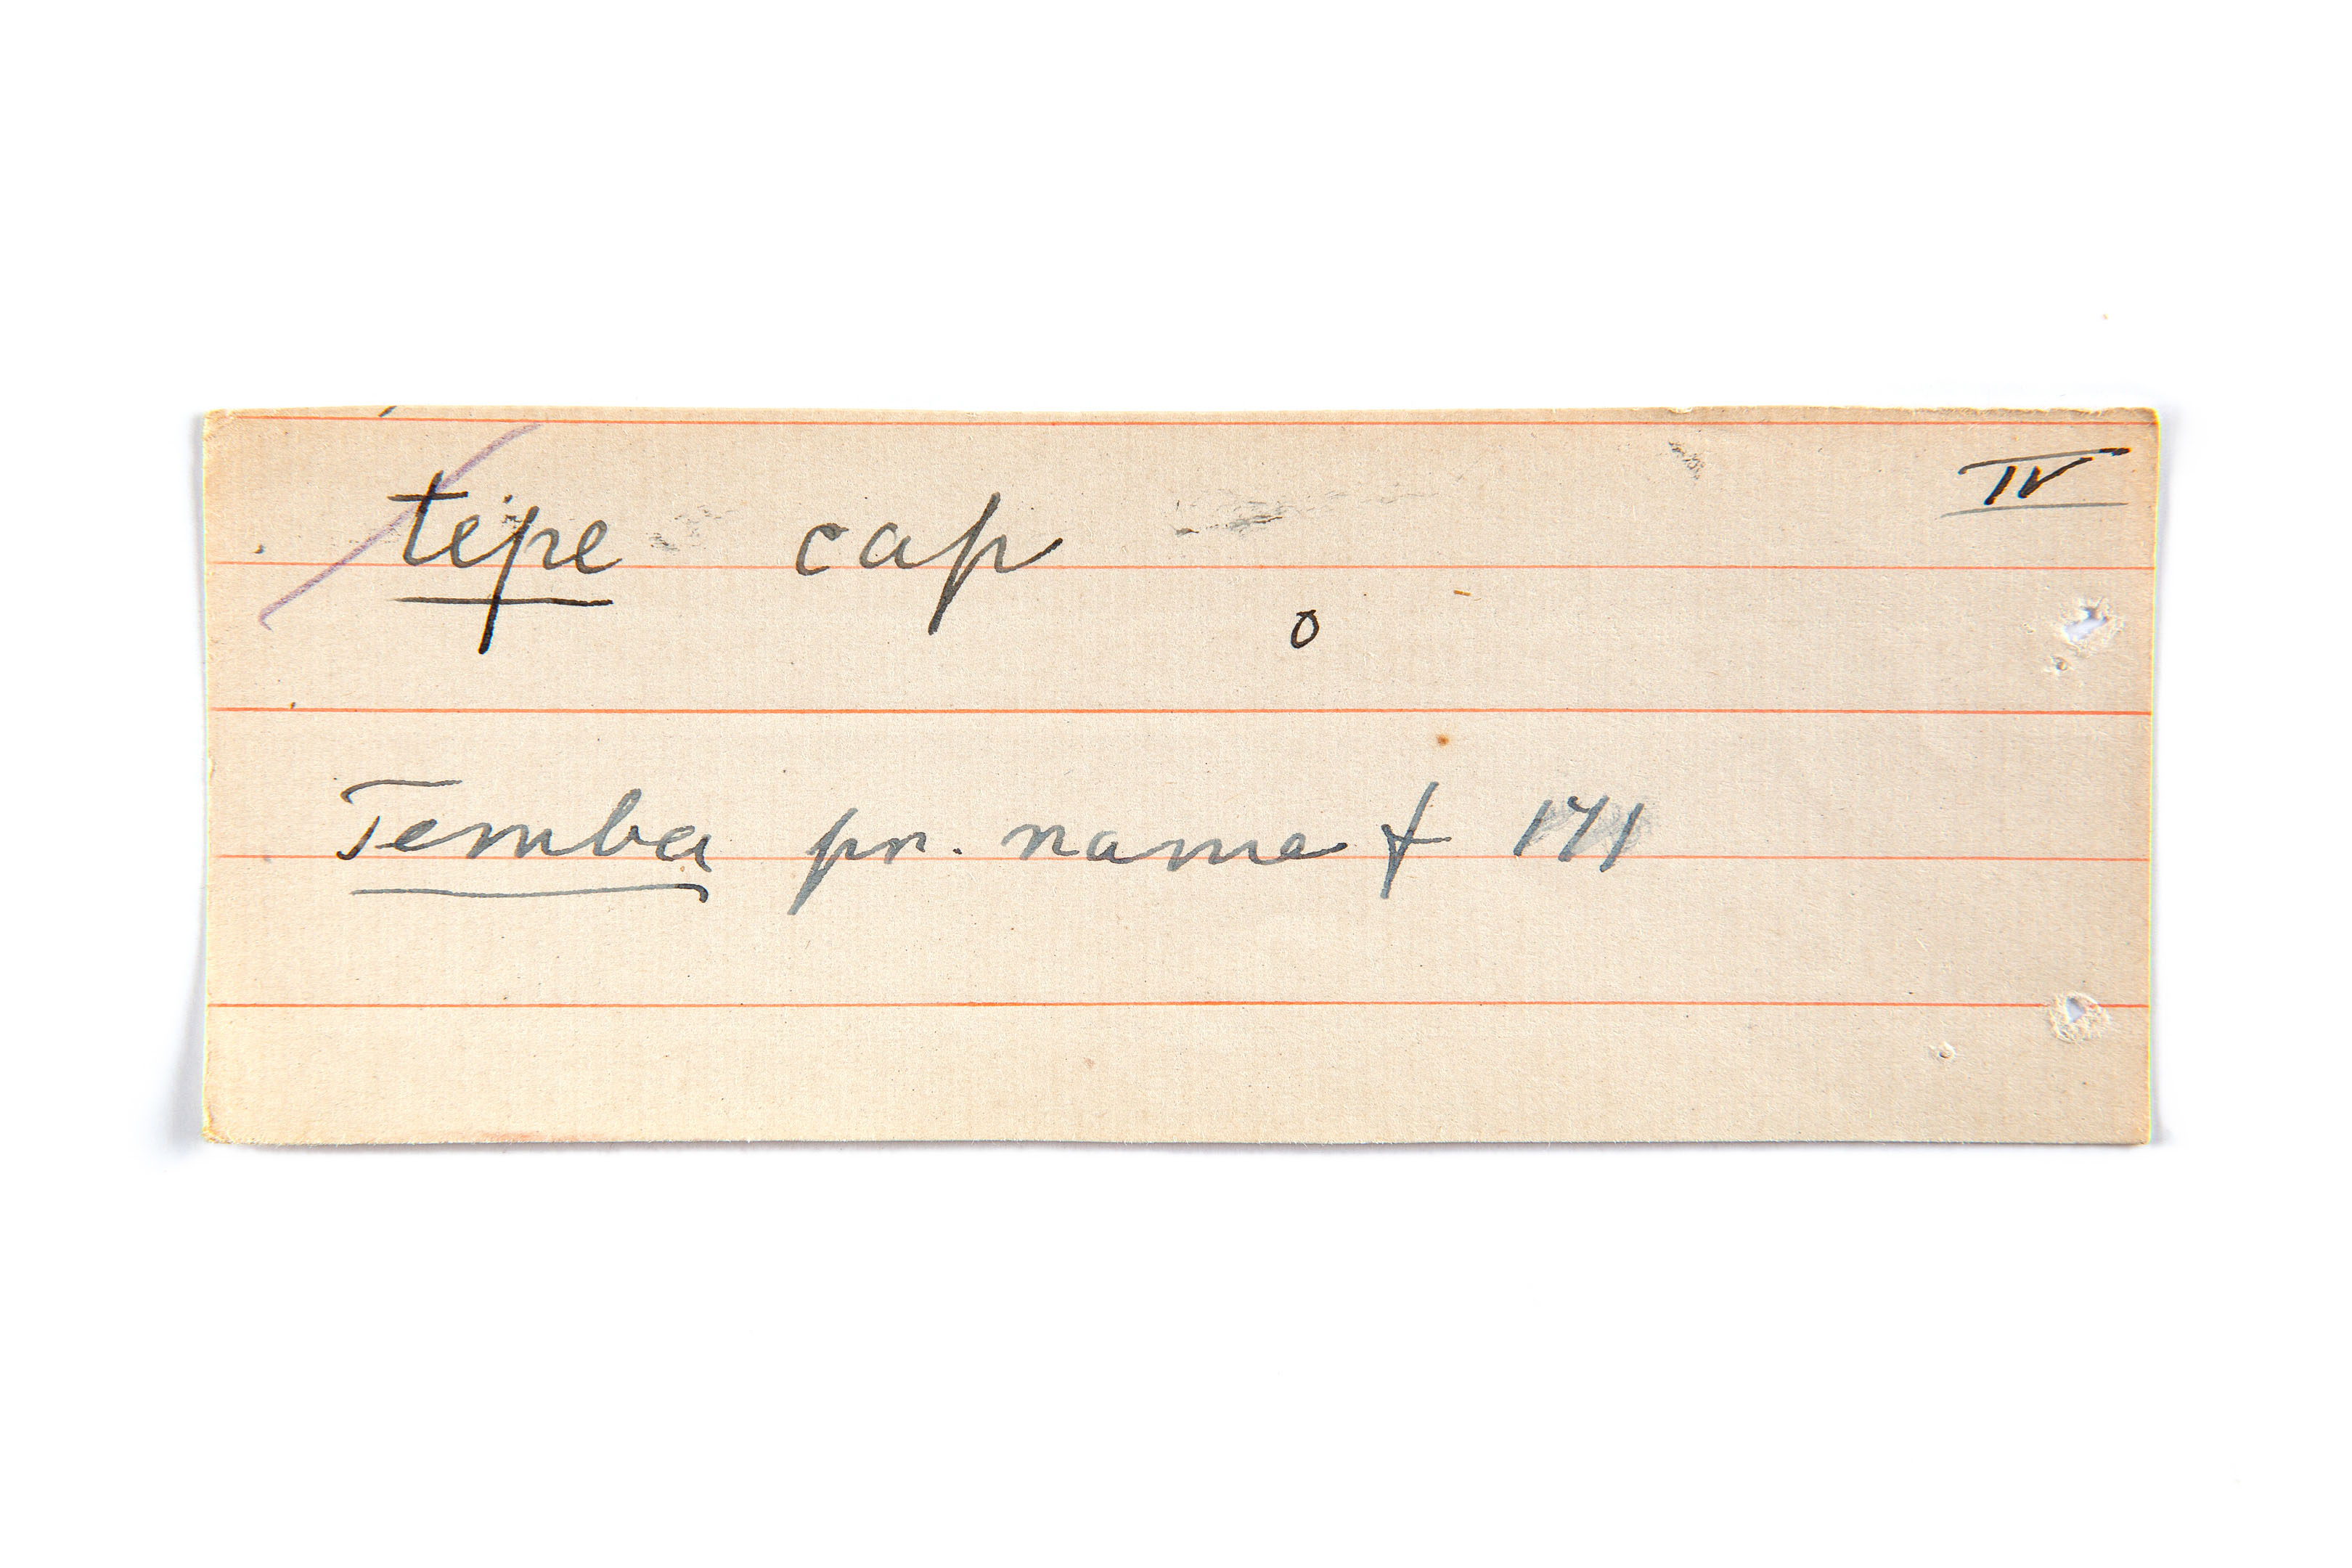 tepe cap IV
o
Temba pr. name f 171